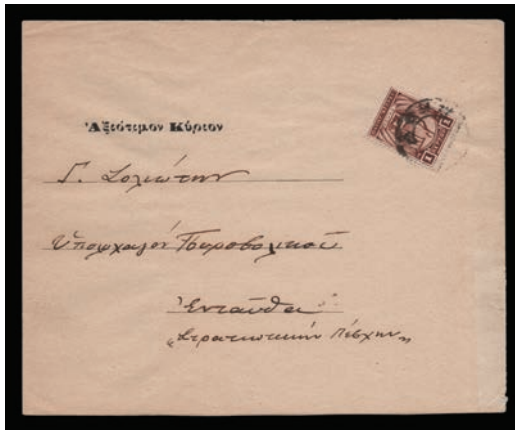 Ἀξιότιμον Κύριον
Γ. Σολιώτην
Ὑπολοχαγόν Πυροβολικοῦ
Ἐνταῦθα
„Στρατιωτικὴν Λέσχην„
1 1